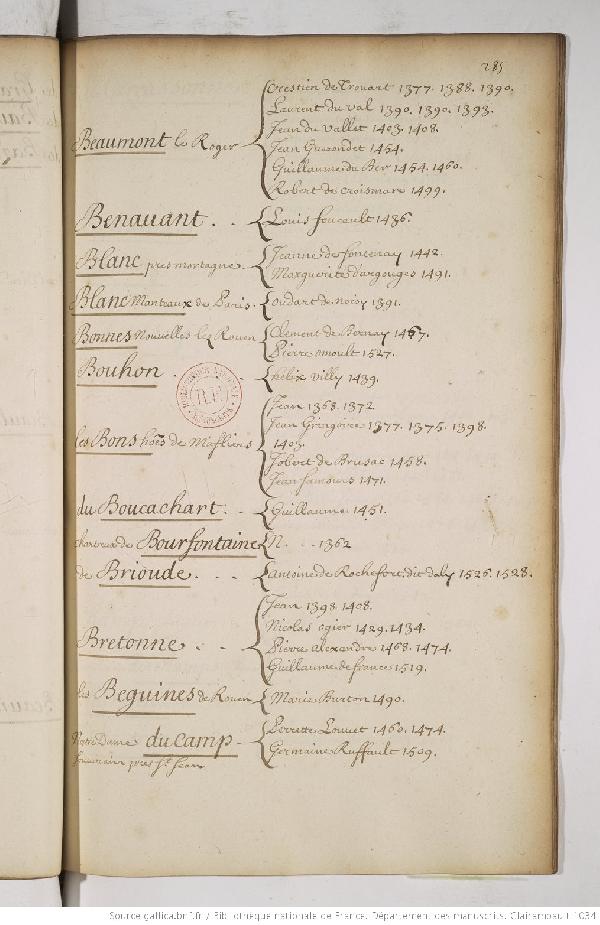 285
Beaumont le Roger
Crestien de Trouart 1377. 1388. 1390.
Laurent du val 1390. 1390. 1393.
Jean du Vallet 1403. 1408.
Jean Guerondet 1454.
Guillaume du Ber 1454. 1460.
Robert de Croismare 1499.
Benauant. . .
Louis foucault 1486.
Blanc pres mortagne.
Jeanne de fontenay 1442.
Marguerite d'argouges 1491.
Blanc Manteaux de Paris.
oudart de noisy 1391.
Bonnes Nouvelles lez Rouen
Clement de Bernay 1467.
Pierre 1527.
Bouhon .
felix villy 1439.
les Bons hões de
Jean 1368. 1372
Jean Gringoire 1377. 1375. 1398.
1403.
Jobert de Brusac 1458.
Jean 1471.
du Boucachart. .
Guillaume 1451.
chartreux de Boursfontaine
N. . . 1362
de Brioude. . .
Antoine de Rochefort, dit d'ally 1526. 1528.
Bretonne . .
Jean 1398. 1408.
Nicolas ogier 1429. 1434.
Pierre alexandre 1468. 1474.
Guillaume de france 1519.
les Beguines de Rouen
Marie Burton 1490.
Notre Dame du Camp
pres St. Jean
Perrette Louuet 1460. 1474.
Germaine Ruffault 1509.
Source gallica.bnf.fr / Bibliothèque nationale de France. Département des manuscrits. Clairambault 1034